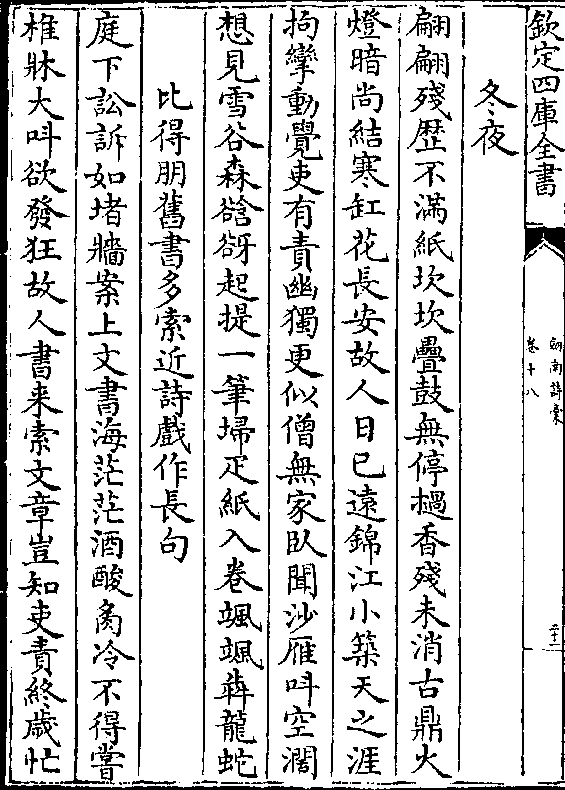 欽定四庫全書
劍南詩稾
卷十八
二十二
冬夜
翩翩殘歴不滿紙坎坎疊鼓無停撾香殘未消古鼎火
燈暗尚結寒缸花長安故人日已遠錦江小築天之涯
拘攣動覺吏有責幽獨更似僧無家臥聞沙雁叫空濶
想見雪谷森谽谺起提一筆埽疋紙入卷颯颯犇龍蛇
比得朋舊書多索近詩戲作長句
庭下訟訴如堵牆案上文書海茫茫酒酸胾冷不得嘗
椎牀大叫欲發狂故人書来索文章豈知吏責終歲忙